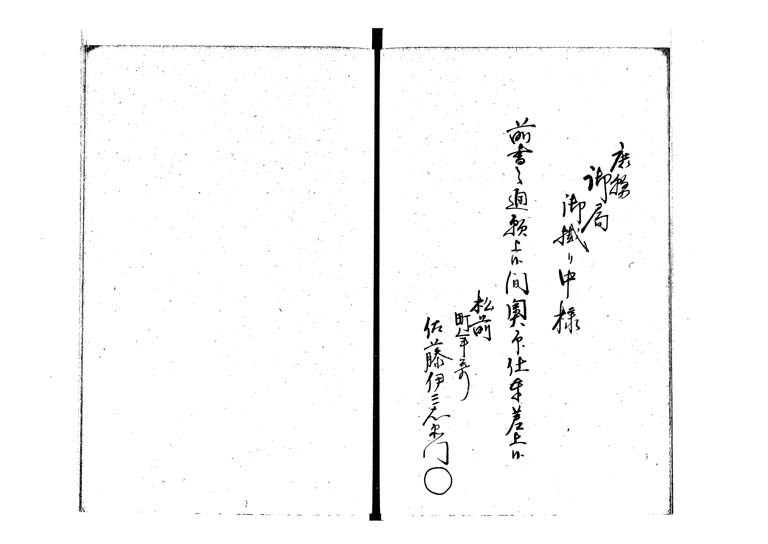 庶務
御局
御掛り中様
前書之通願上候間奥印仕奉差上候
松前
町年寄
佐藤伊三右衛門